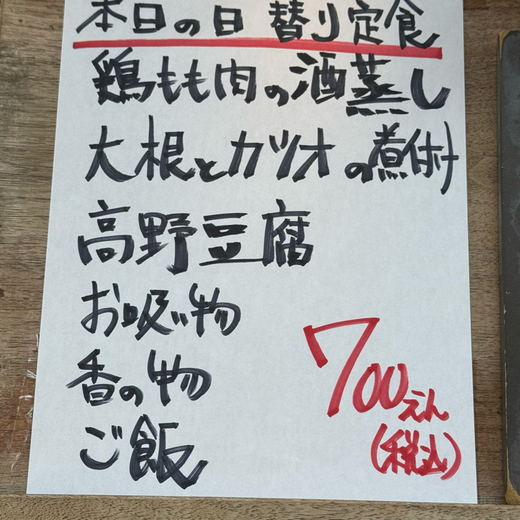 本日の日替り定食
鶏もも肉の酒蒸し
大根とカツオの煮付
高野豆腐
お吸い物
香の物
ご飯
700えん
(税込)